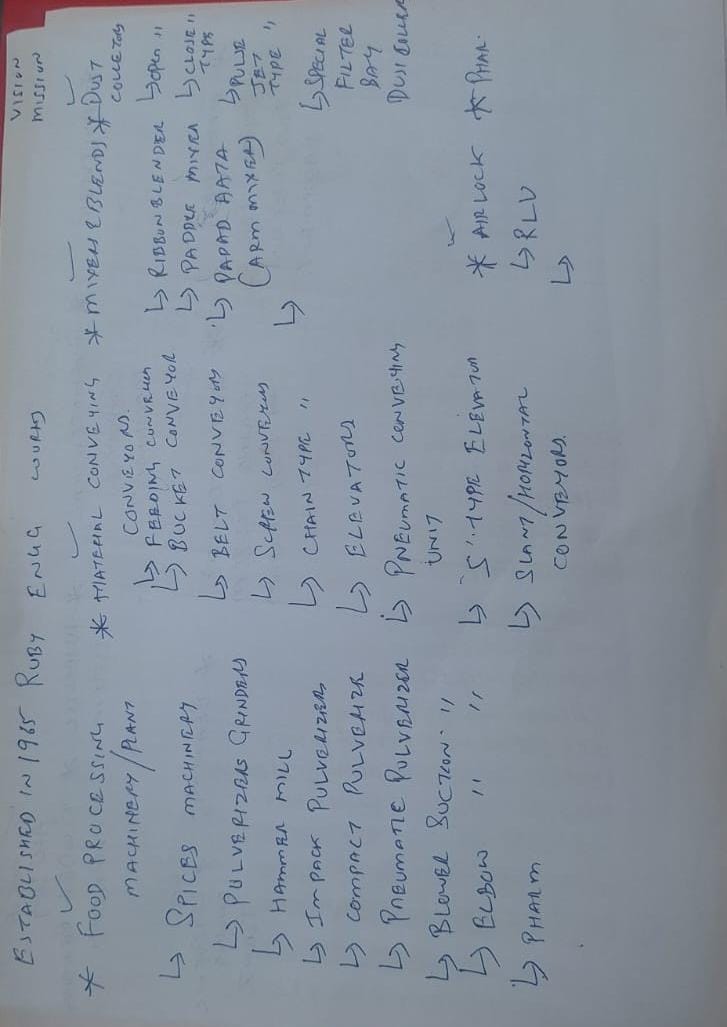 VISION
MISSION
ESTABLISHED IN 1965 RUBY ENGG WORKS
* FOOD PROCESSING
MACHINERY/PLANT
↳ SPICES MACHINERY
↳ PULVERIZERS GRINDERS
↳ HAMMER MILL
↳ IMPACK PULVERIZERS
↳ COMPACT PULVERIZER
↳ PNEUMATIC PULVERIZER
↳ BLOWER SUCTION "
↳ ELBOW " "
↳ PHARM
* MATERIAL CONVEYING
CONVEYORS.
↳ FEEDING CONVEYOR
↳ BUCKET CONVEYOR
↳ BELT CONVEYORS
↳ SCREW CONVEYORS
↳ CHAIN TYPE "
↳ ELEVATORS
↳ PNEUMATIC CONVEYING
UNIT
↳ "S" TYPE ELEVATOR
↳ SLANT/HORIZONTAL
CONVEYORS.
* MIXER & BLENDS
↳ RIBBON BLENDER
↳ PADDLE MIXER
↳ PAPAD AATA
(ARM MIXER)
↳
* AIRLOCK
↳ RLV
↳
* DUST
COLLETORS
↳ OPEN "
↳ CLOSE "
TYPE
↳ PULSE
JET
TYPE "
↳ SPECIAL
FILTER
BAY
DUST
* PHAR.